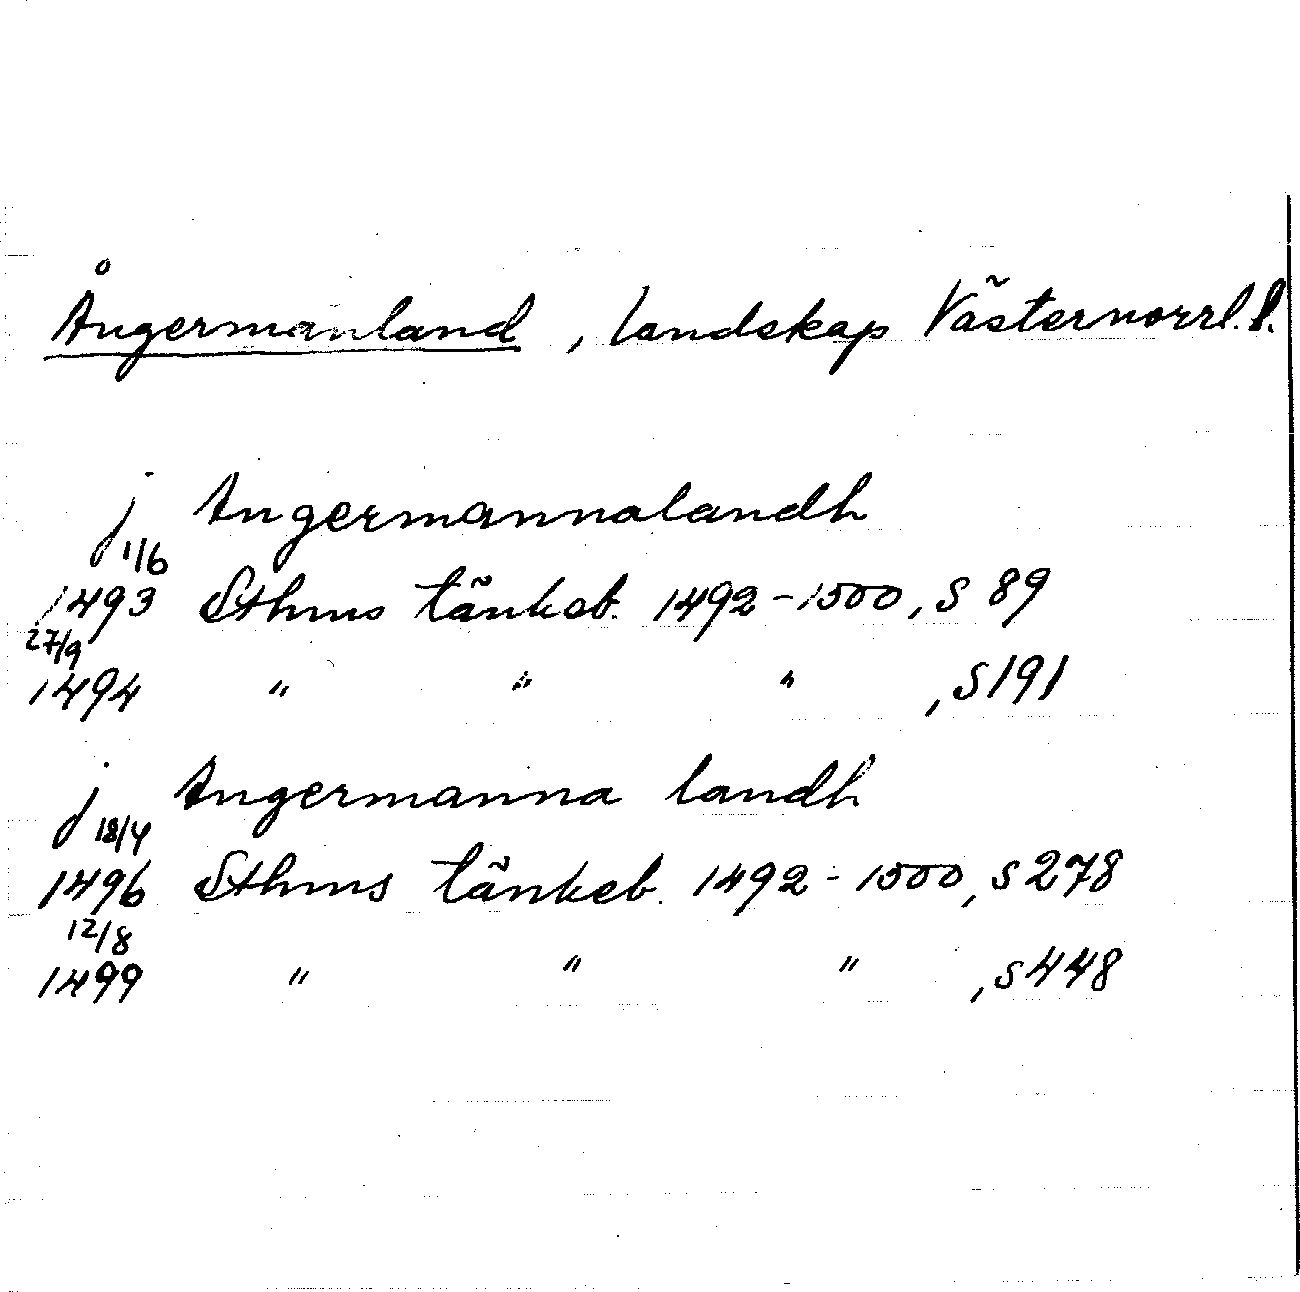 Ångermanland, landskap Västernorrl.l.
j Angermannalandh
1/6
1493 Sthms tänkeb. 1492-1500, s 89
27/9
1494 " " " , s 191
j Angermanna landh
18/4
1496 Sthms tänkeb. 1492-1500, s 278
12/8
1499 " " " , s 448